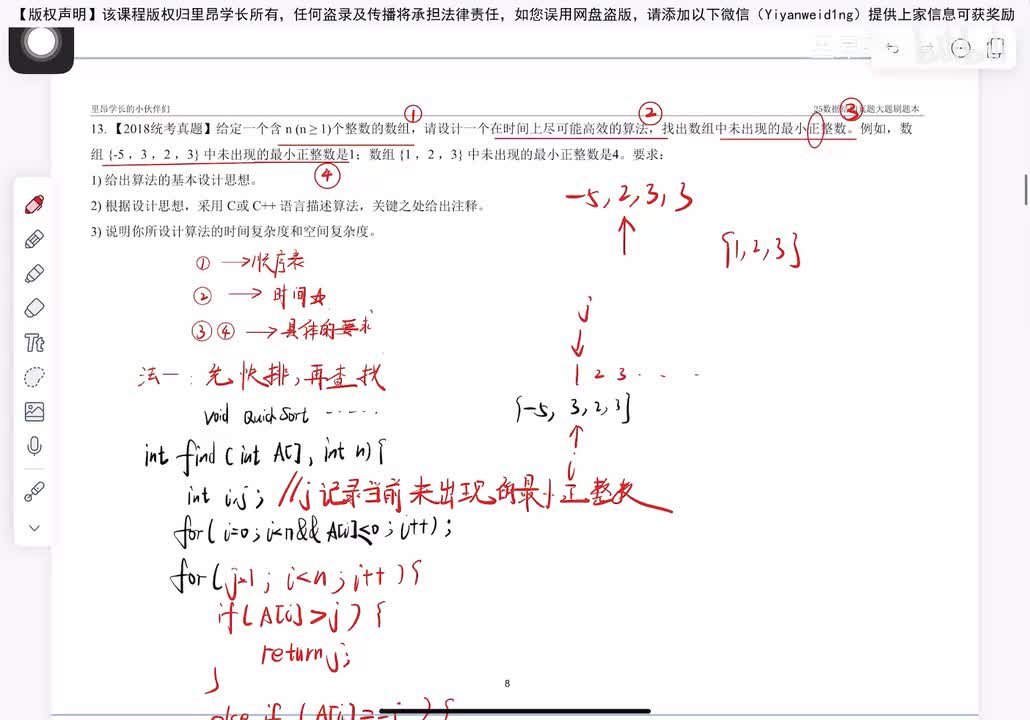 【版权声明】该课程版权归里昂学长所有，任何盗录及传播将承担法律责任，如您误用网盘盗版，请添加以下微信（Yiyanweid1ng）提供上家信息可获奖励
里昂学长的小伙伴们
13. 【2018统考真题】给定一个含 n (n ≥ 1)个整数的数组，请设计一个在时间上尽可能高效的算法，找出数组中未出现的最小正整数。例如，数
组 {-5，3，2，3} 中未出现的最小正整数是1；数组 {1，2，3} 中未出现的最小正整数是4。要求：
① ② ③ ④
1) 给出算法的基本设计思想。
2) 根据设计思想，采用 C或 C++ 语言描述算法，关键之处给出注释。
3) 说明你所设计算法的时间复杂度和空间复杂度。
-5, 2, 3, 3
{1, 2, 3}
① → 顺序表
② → 时间
③ ④ → 具体的要求
j
1 2 3 . . .
{-5, 3, 2, 3}
i
法一：先快排，再查找
void QuickSort ······
int find (int A[], int n){
int i,j; //j 记录当前未出现的最小正整数
for(i=0;i<n&&A[i]≤0;i++);
for(j=1; i<n; i++){
if(A[i]>j){
return j;
}
else if (A[i]==j){
8
Tt